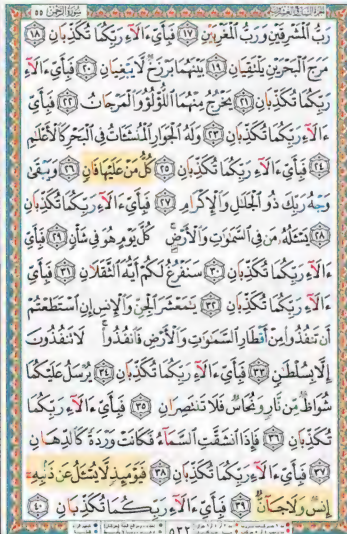 سُورَةُ الرَّحۡمَٰن ٥٥
رَبُّ ٱلۡمَشۡرِقَيۡنِ وَرَبُّ ٱلۡمَغۡرِبَيۡنِ ١٧ فَبِأَيِّ ءَالَآءِ رَبِّكُمَا تُكَذِّبَانِ ١٨
مَرَجَ ٱلۡبَحۡرَيۡنِ يَلۡتَقِيَانِ ١٩ بَيۡنَهُمَا بَرۡزَخٞ لَّا يَبۡغِيَانِ ٢٠ فَبِأَيِّ ءَالَآءِ
رَبِّكُمَا تُكَذِّبَانِ ٢١ يَخۡرُجُ مِنۡهُمَا ٱللُّؤۡلُؤُ وَٱلۡمَرۡجَانُ ٢٢ فَبِأَيِّ
ءَالَآءِ رَبِّكُمَا تُكَذِّبَانِ ٢٣ وَلَهُ ٱلۡجَوَارِ ٱلۡمُنشَـَٔاتُ فِي ٱلۡبَحۡرِ كَٱلۡأَعۡلَٰمِ
٢٤ فَبِأَيِّ ءَالَآءِ رَبِّكُمَا تُكَذِّبَانِ ٢٥ كُلُّ مَنۡ عَلَيۡهَا فَانٖ ٢٦ وَيَبۡقَىٰ
وَجۡهُ رَبِّكَ ذُو ٱلۡجَلَٰلِ وَٱلۡإِكۡرَامِ ٢٧ فَبِأَيِّ ءَالَآءِ رَبِّكُمَا تُكَذِّبَانِ
٢٨ يَسۡـَٔلُهُۥ مَن فِي ٱلسَّمَٰوَٰتِ وَٱلۡأَرۡضِۚ كُلَّ يَوۡمٍ هُوَ فِي شَأۡنٖ ٢٩ فَبِأَيِّ
ءَالَآءِ رَبِّكُمَا تُكَذِّبَانِ ٣٠ سَنَفۡرُغُ لَكُمۡ أَيُّهَ ٱلثَّقَلَانِ ٣١ فَبِأَيِّ
ءَالَآءِ رَبِّكُمَا تُكَذِّبَانِ ٣٢ يَٰمَعۡشَرَ ٱلۡجِنِّ وَٱلۡإِنسِ إِنِ ٱسۡتَطَعۡتُمۡ
أَن تَنفُذُواْ مِنۡ أَقۡطَارِ ٱلسَّمَٰوَٰتِ وَٱلۡأَرۡضِ فَٱنفُذُواْۚ لَا تَنفُذُونَ
إِلَّا بِسُلۡطَٰنٖ ٣٣ فَبِأَيِّ ءَالَآءِ رَبِّكُمَا تُكَذِّبَانِ ٣٤ يُرۡسَلُ عَلَيۡكُمَا
شُوَاظٞ مِّن نَّارٖ وَنُحَاسٞ فَلَا تَنتَصِرَانِ ٣٥ فَبِأَيِّ ءَالَآءِ رَبِّكُمَا
تُكَذِّبَانِ ٣٦ فَإِذَا ٱنشَقَّتِ ٱلسَّمَآءُ فَكَانَتۡ وَرۡدَةٗ كَٱلدِّهَانِ
٣٧ فَبِأَيِّ ءَالَآءِ رَبِّكُمَا تُكَذِّبَانِ ٣٨ فَيَوۡمَئِذٖ لَّا يُسۡـَٔلُ عَن ذَنۢبِهِۦٓ
إِنسٞ وَلَا جَآنّٞ ٣٩ فَبِأَيِّ ءَالَآءِ رَبِّكُمَا تُكَذِّبَانِ ٤٠
٥٣٢